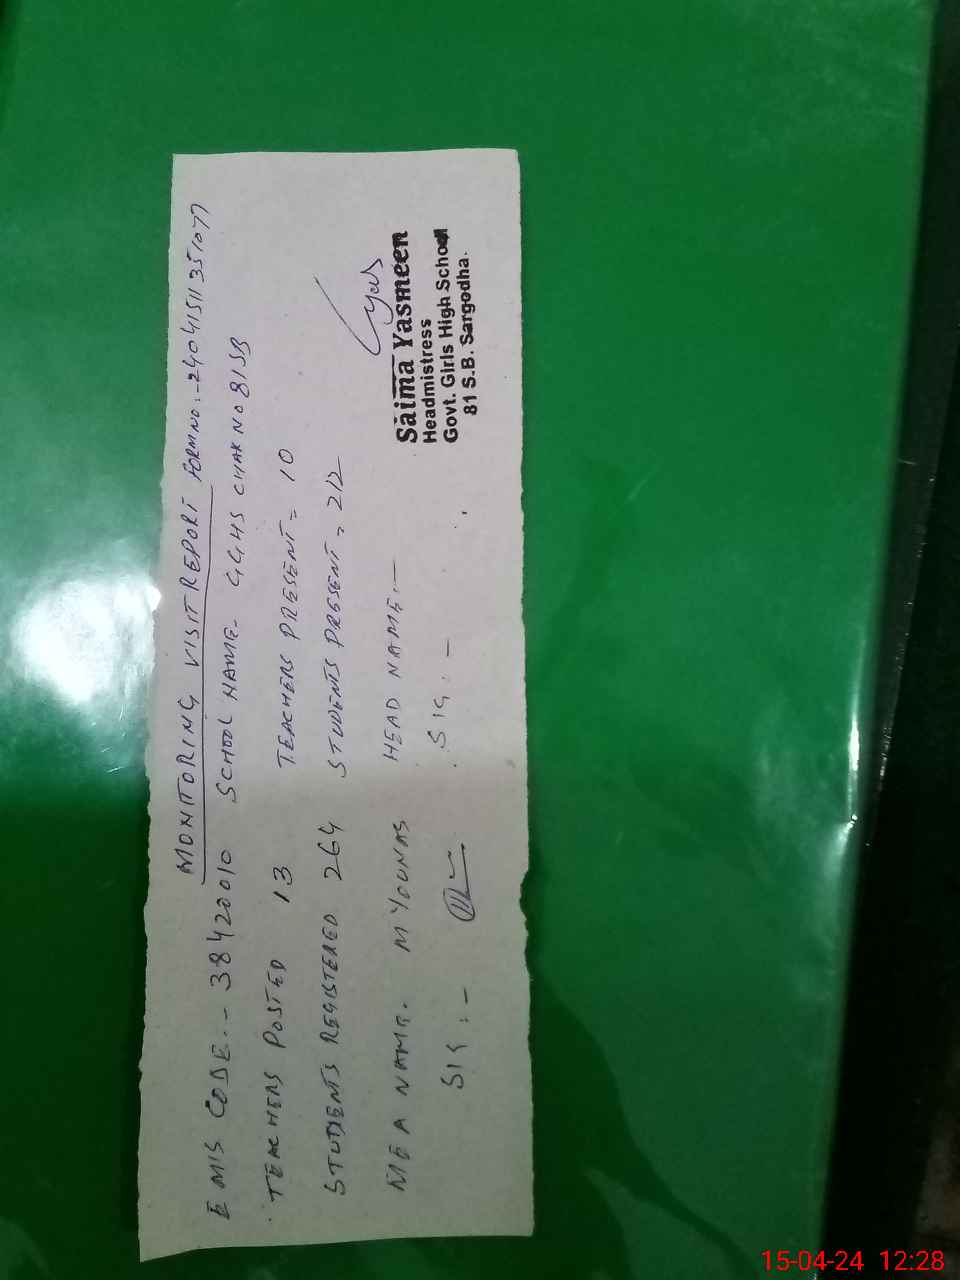 MONITORING VISIT REPORT FORM NO:-24041511351077
EMIS CODE.-- 38420010 SCHOOL NAME- GGHS CHAK NO 81SB
TEACHERS POSTED 13 TEACHERS PRESENT= 10
STUDENTS REGISTERED 264 STUDENTS PRESENT= 212
MEA NAME. M YOUNAS HEAD NAME.-
SIG:- SIG:-
Saima Yasmeen
Headmistress
Govt. Girls High School
81 S.B. Sargodha.
15-04-24 12:28